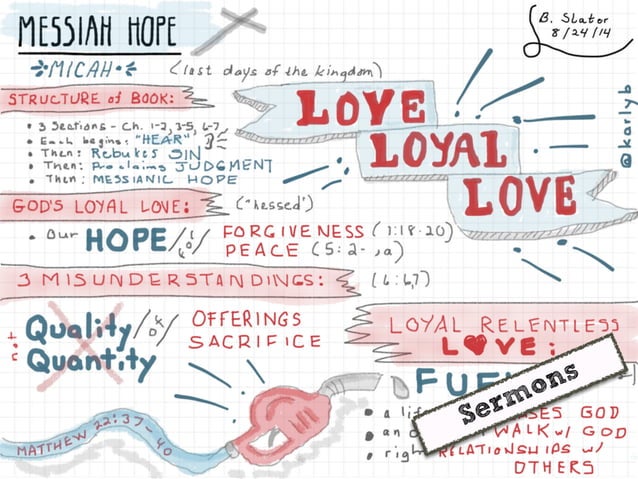 MESSIAH HOPE
B. Slator
8/24/14
MICAH
(last days of the kingdom)
@karlyb
STRUCTURE of BOOK:
• 3 Sections - Ch. 1-2, 3-5, 6-7
• Each begins: "HEAR"
• Then: Rebukes SIN
• Then: Proclaims JUDGMENT
• Then: MESSIANIC HOPE
LOVE
LOYAL
LOVE
GOD'S LOYAL LOVE: ("hessed")
• Our HOPE / 4 / FORGIVENESS (7:18-20)
PEACE (5:2-,a)
3 MISUNDERSTANDINGS: (6:6,7)
not Quality / OFFERINGS
Quantity SACRIFICE
LOYAL RELENTLESS
LOVE:
Sermons
• a SES GOD
• WALK w/ GOD
• right RELATIONSHIPS w/
OTHERS
MATTHEW 22:37-40